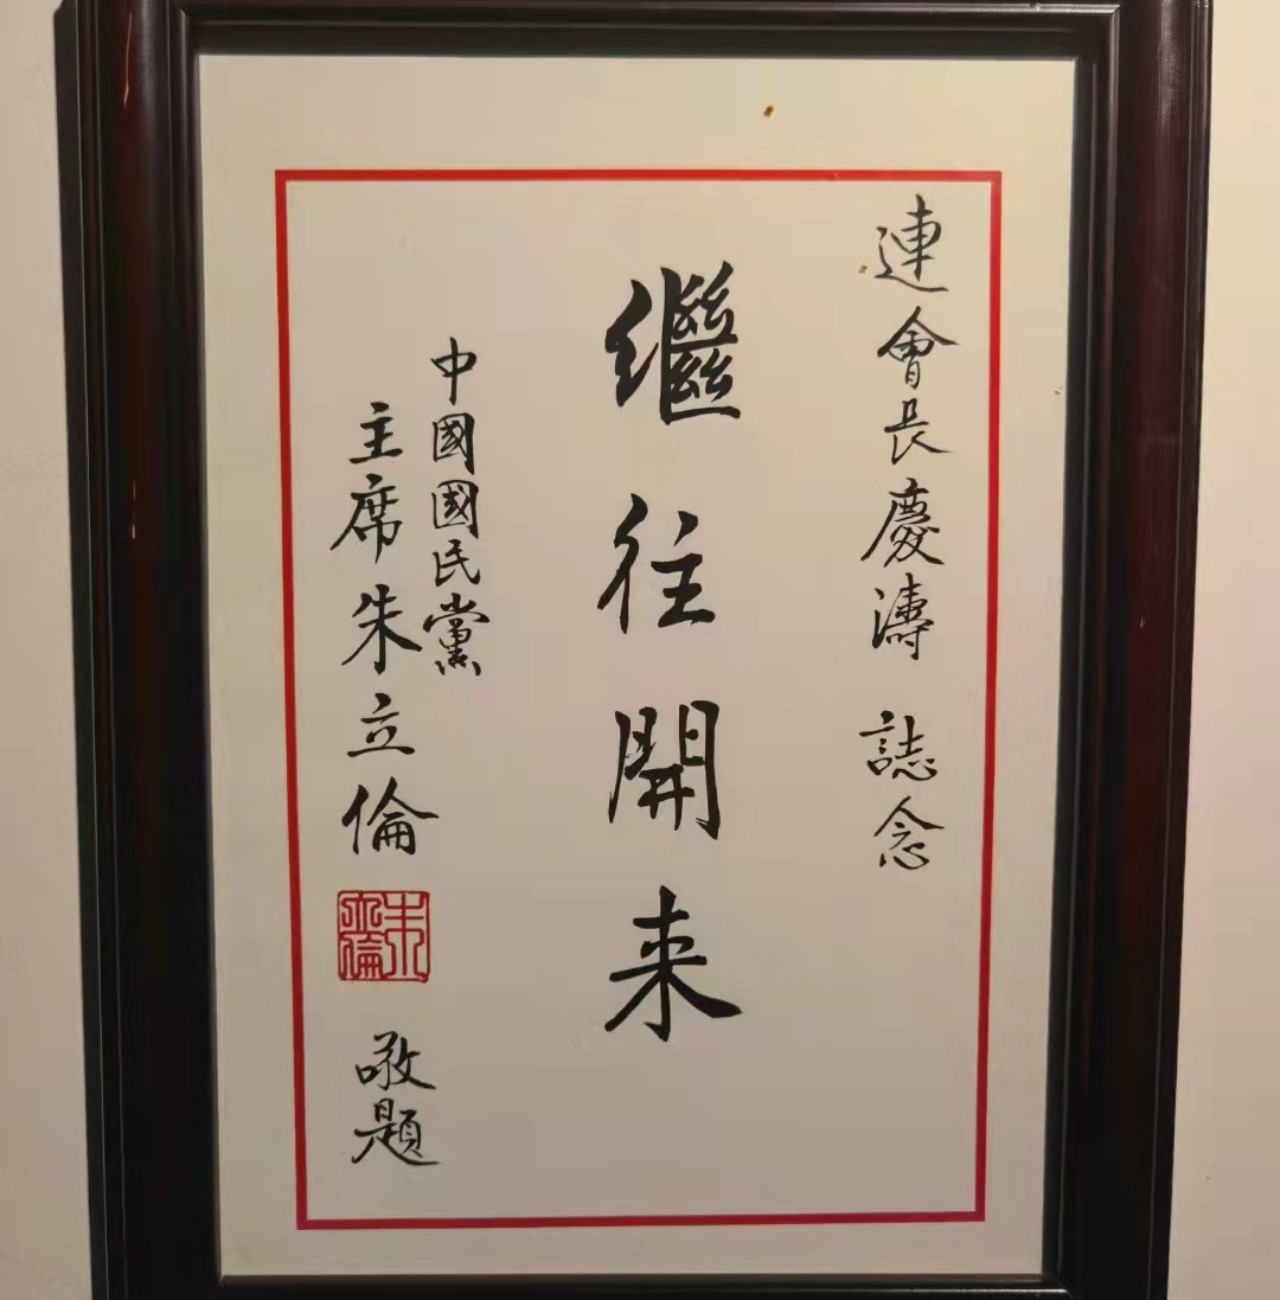 連會長慶濤 誌念
繼往開来
中國國民黨
主席朱立倫 敬題
朱立倫